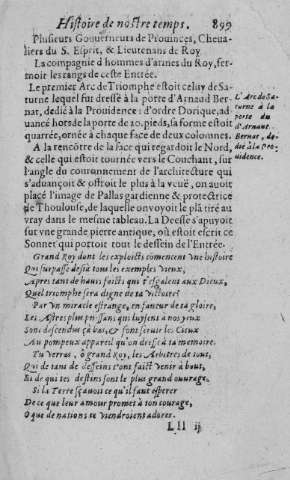 Histoire de nostre temps. 899
Plusieurs Gouuerneurs de Prouinces, Cheua-
liers du S. Esprit, & Lieutenans de Roy.
La compagnie d'hommes d'armes du Roy, fer-
moit les rangs de ceste Entrée.
Le premier Arc de Triomphe estoit celuy de Sa-
turne lequel fut dressé à la porte d'Arnaud Ber-
nat, dedié à la Prouidence: d'ordre Dorique, ad
uancé hors de la porte de 20. pieds, sa forme estoit
quarrée, ornée à chaque face de deux colomnes.
L'Arc de Sa-
turne à la
porte du
d'Arnaut
Bernat, de-
dié à la Pro-
uidence.
A la rencôtre de la face qui regardoit le Nord,
& celle qui estoit tournée vers le Couchant, sur
l'angle du couronnement de l'architecture qui
s'aduançoit & offroit le plus à la veuë, on auoit
placé l'image de Pallas gardienne & protectrice
de Thoulouse, de laquelle on voyoit le plã tiré au
vray dans le mesme tableau. La Deesse s'apuyoit
sur vne grande pierre antique, où estoit escrit ce
Sonnet qui portoit tout le dessein de l'Entrée.
Grand Roy dont les exploicts commencent vne histoire
Qui surpasse desia tous les exemples vieux,
Apres tant de hauts faicts qui t'esgalent aux Dieux,
Quel triomphe sera digne de ta victoire?
Par vn miracle estrange, en faueur de ta gloire,
Les Astres plus puissans qui luysent à nos yeux
Sont descendus çà bas, & font seruir les Cieux
Au pompeux appareil qu'on dresse à ta memoire.
Tu verras, ô grand Roy, les Arbitres de tout,
Qui de tant de desseins t'ont faict venir à bout,
Et de qui tes destins sont le plus grand ouurage.
Si la Terre sçauoit ce qu'il faut esperer
De ce que leur amour promet à ton courage,
O que de nations te viendroient adorer.
Lll ij